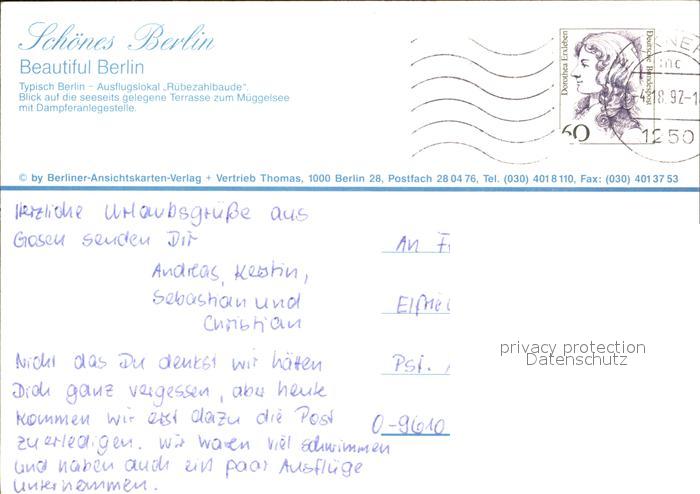 Schönes Berlin
Beautiful Berlin
Typisch Berlin – Ausflugslokal „Rübezahlbaude".
Blick auf die seeseits gelegene Terrasse zum Müggelsee
mit Dampferanlegestelle.
Dorothea Erxleben
Deutsche Bundespost
60
1250
© by Berliner-Ansichtskarten-Verlag + Vertrieb Thomas, 1000 Berlin 28, Postfach 28 04 76, Tel. (030) 401 8 110, Fax: (030) 401 37 53
Herzliche Urlaubsgrüße aus
Gosen senden Dir
Andreas, Kerstin,
Sebastian und
Christian
Nicht das Du denkst wir hätten
Dich ganz vergessen, aber heute
kommen wir erst dazu die Post
zu erledigen. Wir waren viel schwimmen
und haben auch ein paar Ausflüge
unternommen.
An
Pst.
O-9610
privacy protection
Datenschutz